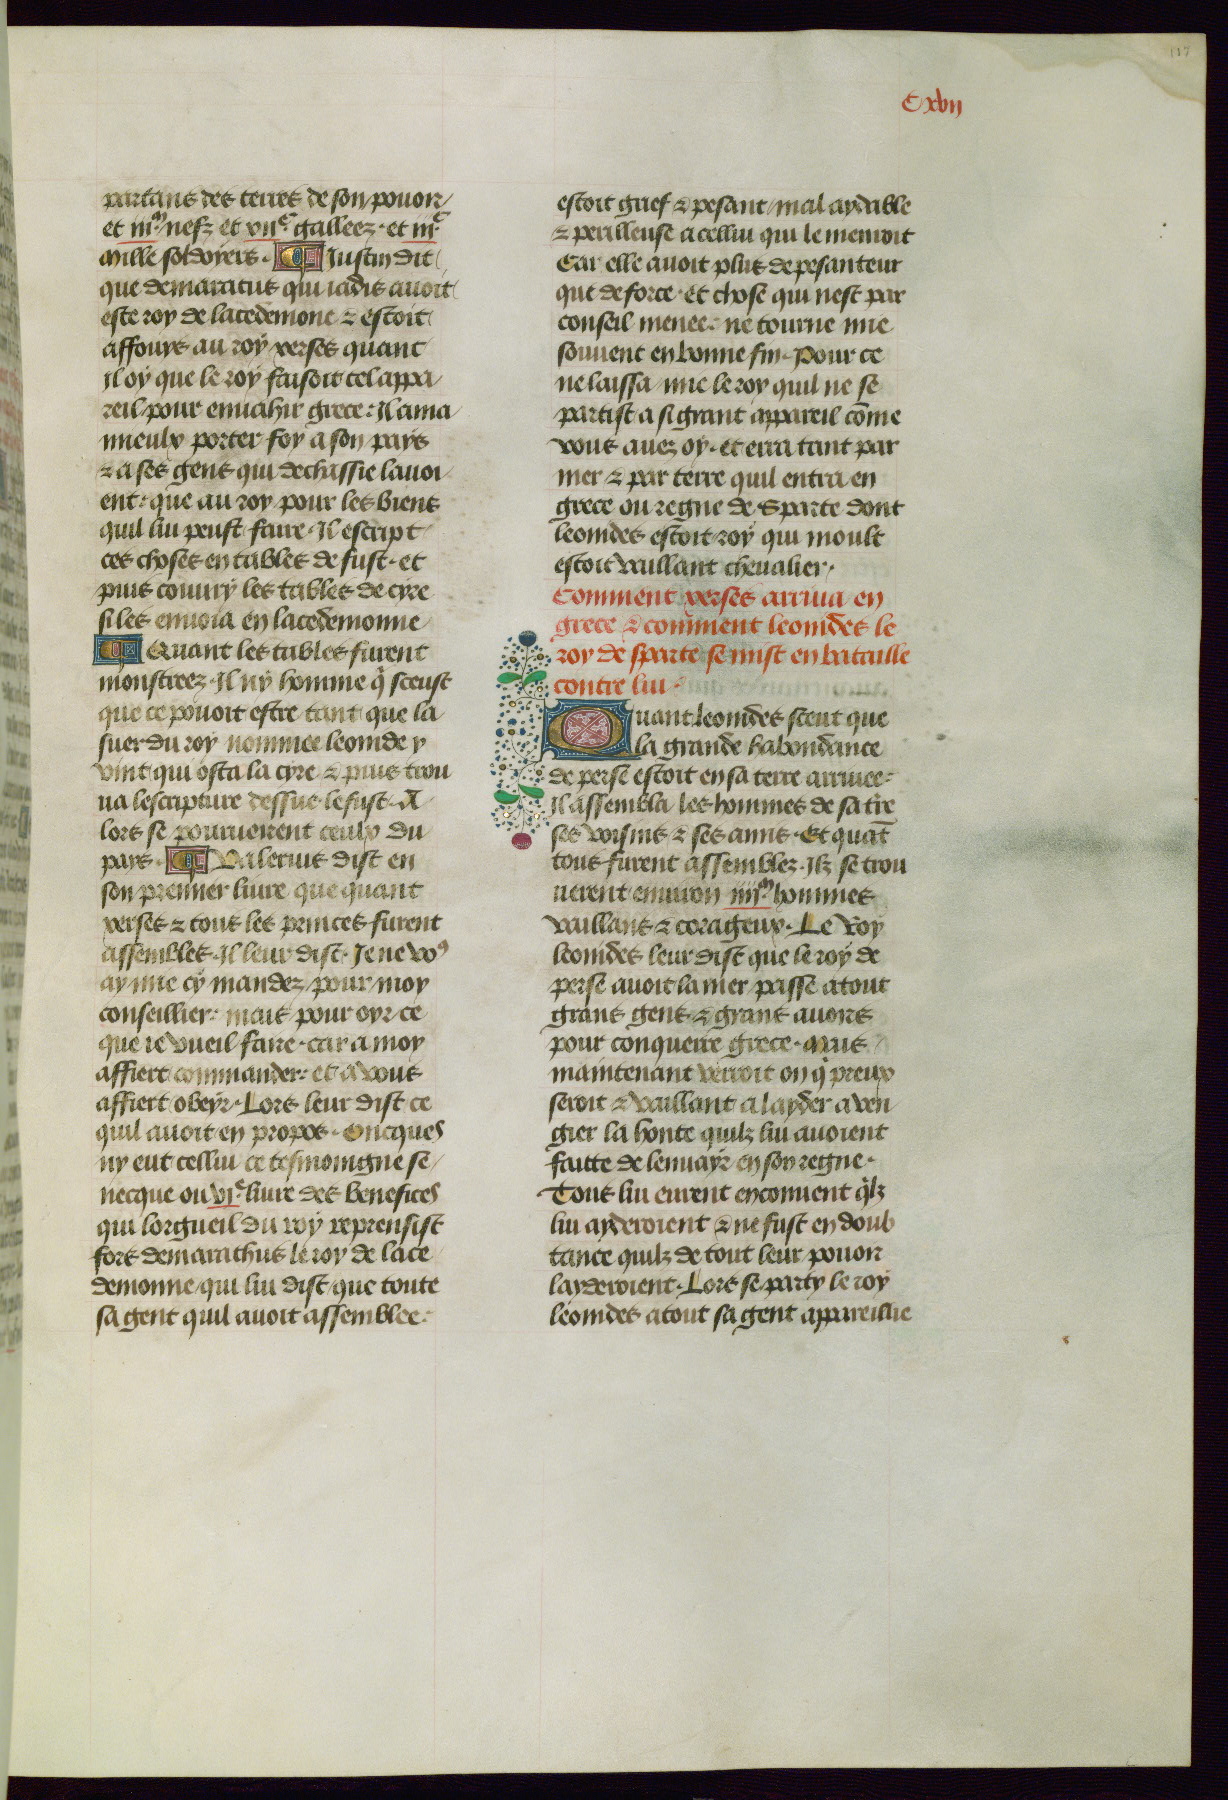 117
C xvii
partans des terres de son pouoir
et iii.m nefz et vii.c galleez. et iii.c
mille soldoyers. Justin dit
que demaratus qui iadis auoit
este roy de lacedemone & estoit
affouys au roy xerses quant
il oy que le roy faisoit tel appa
reil pour enuahir grece: Il ama
mieulx porter foy a son pays
& a ses gens qui dechassie lauoi
ent: que au roy pour les biens
quil lui peust faire. Il escript
ces choses en tables de fust. et
puis couury les tables de cyre
si les enuoia en lacedemonne
Quant les tables furent
monstreez. Il ny homme q̃ sceust
que ce pouoit estre tant que la
suer du roy nommee leonide y
vint qui osta la cyre & puis trou
ua lescripture dessus le fust. A
lors se pourueirent ceulx du
pays. Valerius dist en
son premier liure que quant
xerses & tous les princes furent
assembles. Il leur dist. Je ne vo9
ay mie cy mandez pour moy
conseillier: mais pour oyr ce
que ie vueil faire. car a moy
affiert commander: et a vous
affiert obeyr. Lors leur dist ce
quil auoit en propos. Oncques
ny eut cellui ce tesmoingne se
necque ou vi.e liure des benefices
qui lorgueil du roy reprensist
fors demarathus le roy de lace
demonne qui lui dist que toute
sa gent quil auoit assemblee:
estoit grief & pesant mal aydable
& perilleuse a cellui qui le menroit
Car elle auoit plus de pesanteur
que de force. et chose qui nest par
conseil menee: ne tourne mie
souuent en bonne fin. Pour ce
ne laissa mie le roy quil ne se
partist a si grant appareil cõme
vous auez oy. et erra tant par
mer & par terre quil entra en
grece ou regne de Sparte dont
leonides estoit roy qui moult
estoit vaillant cheualier.
Comment xerses arriua en
grece & comment leonides le
roy de sparte se mist en bataille
contre lui.
Quant leonides sceut que
la grande habondance
de perse estoit en sa terre arriuee:
il assembla les hommes de sa t̃re
ses voisins & ses amis. Et quãt
tous furent assemblez. Ilz se trou
uerent enuiron iiii.m hommes
vaillans & corageux. Le Roy
leonides leur dist que le roy de
perse auoit la mer passe atout
grans gens & grans auoirs
pour conquerre grece. Mais
maintenant verroit on q̃ preux
seroit & vaillant a layder a ven
gier la honte quilz lui auoient
faitte de lenuayr en son regne.
Tous lui eurent en conuent q̃lz
lui ayderoient & ne fust en doub
tance quilz de tout leur pouoir
layderoient. Lors se party le roy
leonides atout sa gent appareillie